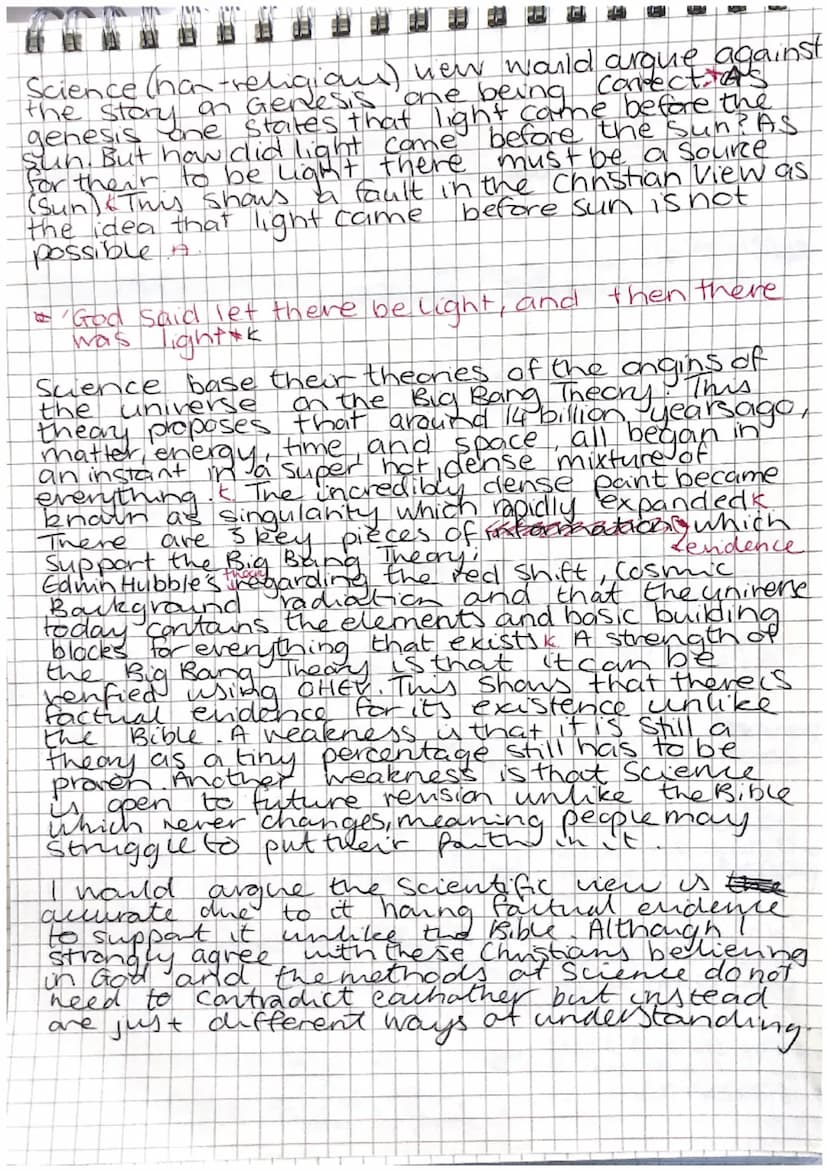 Science (non-religious) view would argue against
the story on Genesis one being correct.* As
genesis one states that light came before the
sun. But how did light come before the sun? As
for their to be light there must be a source
(sun) K This shows a fault in the Christian view as
the idea that light came before sun is not
possible. A
* 'God said let there be light, and then there
was light* K
Science base their theories of the origins of
the universe on the Big Bang Theory. This
theory proposes that around 14 billion years ago,
matter, energy, time, and space, all began in
an instant in a super hot, dense mixture of
everything. K The incredibly dense point became
known as singularity which rapidly expanded K
There are 3 key pieces of information which
evidence
support the Big Bang Theory;
Edwin Hubble's theory regarding the red shift, Cosmic
Background radiation and that the universe
today contains the elements and basic building
blocks for everything that exists K A strength of
the Big Bang Theory is that it can be
verified using OHEV. This shows that there is
factual evidence for its existence unlike
the Bible. A weakness is that it is still a
theory as a tiny percentage still has to be
proven. Another weakness is that Science
is open to future revision unlike the Bible
which never changes, meaning people may
struggle to put their faith in it.
I would argue the scientific view is
accurate due to it having factual evidence
to support it unlike the Bible. Although I
strongly agree with these Christians believing
in God and the methods of Science do not
need to contradict eachother but instead
are just different ways of understanding.